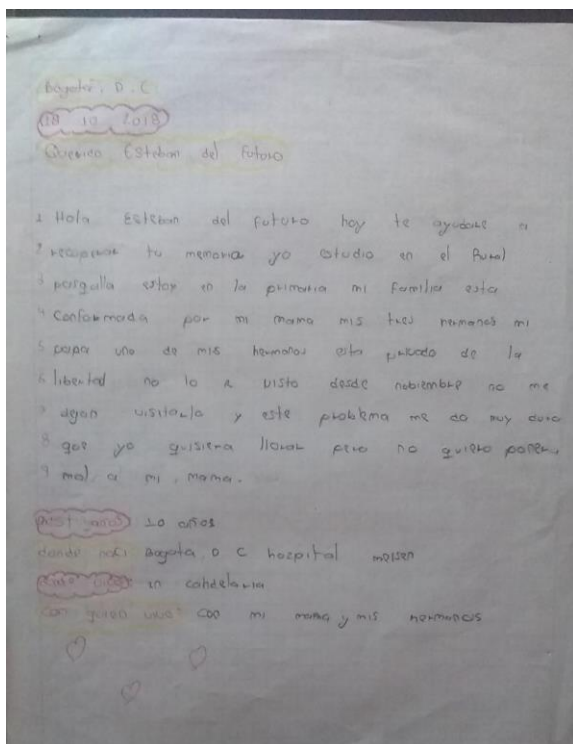 Bogotá. D. C
18 10 2018
Querido Esteban del Futuro
1 Hola Esteban del futuro hoy te ayudare a
2 recuperar tu memoria yo estudio en el Rural
3 pasquilla estoy en la primaria mi familia esta
4 Conformada por mi mama mis tres hermanos mi
5 papa uno de mis hermanos esta privado de la
6 libertad no lo a visto desde nobiembre no me
7 dejan visitarlo y este problema me da muy duro
8 que yo quisiera llorar pero no quiero poner
9 mal a mi mama.
10 años
donde naci Bogota D C hospital meissen
en candelaria
con quien vivo con mi mama y mis hermanos